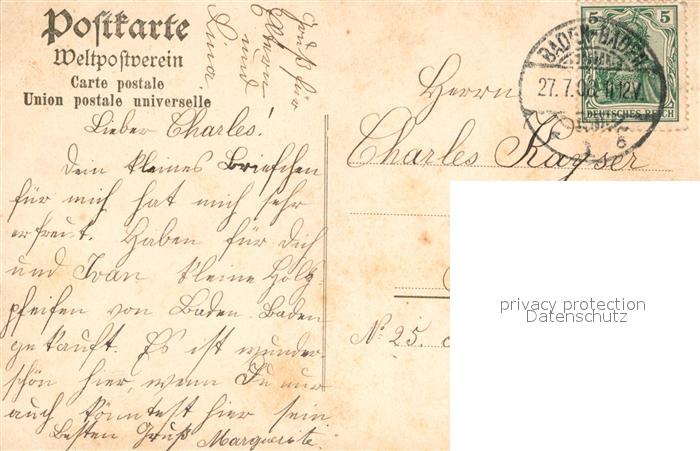 Postkarte
Weltpostverein
Carte postale
Union postale universelle
Gruß für
Eltern
und
Lina
5 5
BADEN-BADEN
27.7.08.11-12V.
DEUTSCHES REICH
Lieber Charles!
Dein kleines Briefchen
für mich hat mich sehr
erfreut. Haben für Dich
und Ivan kleine Holz-
pfeifen von Baden-Baden
gekauft. Es ist wunder
schön hier, wenn Du nur
auch könntest hier sein
Besten Gruß Marguerite.
Herrn
Charles Kayser
No 25.
privacy protection
Datenschutz